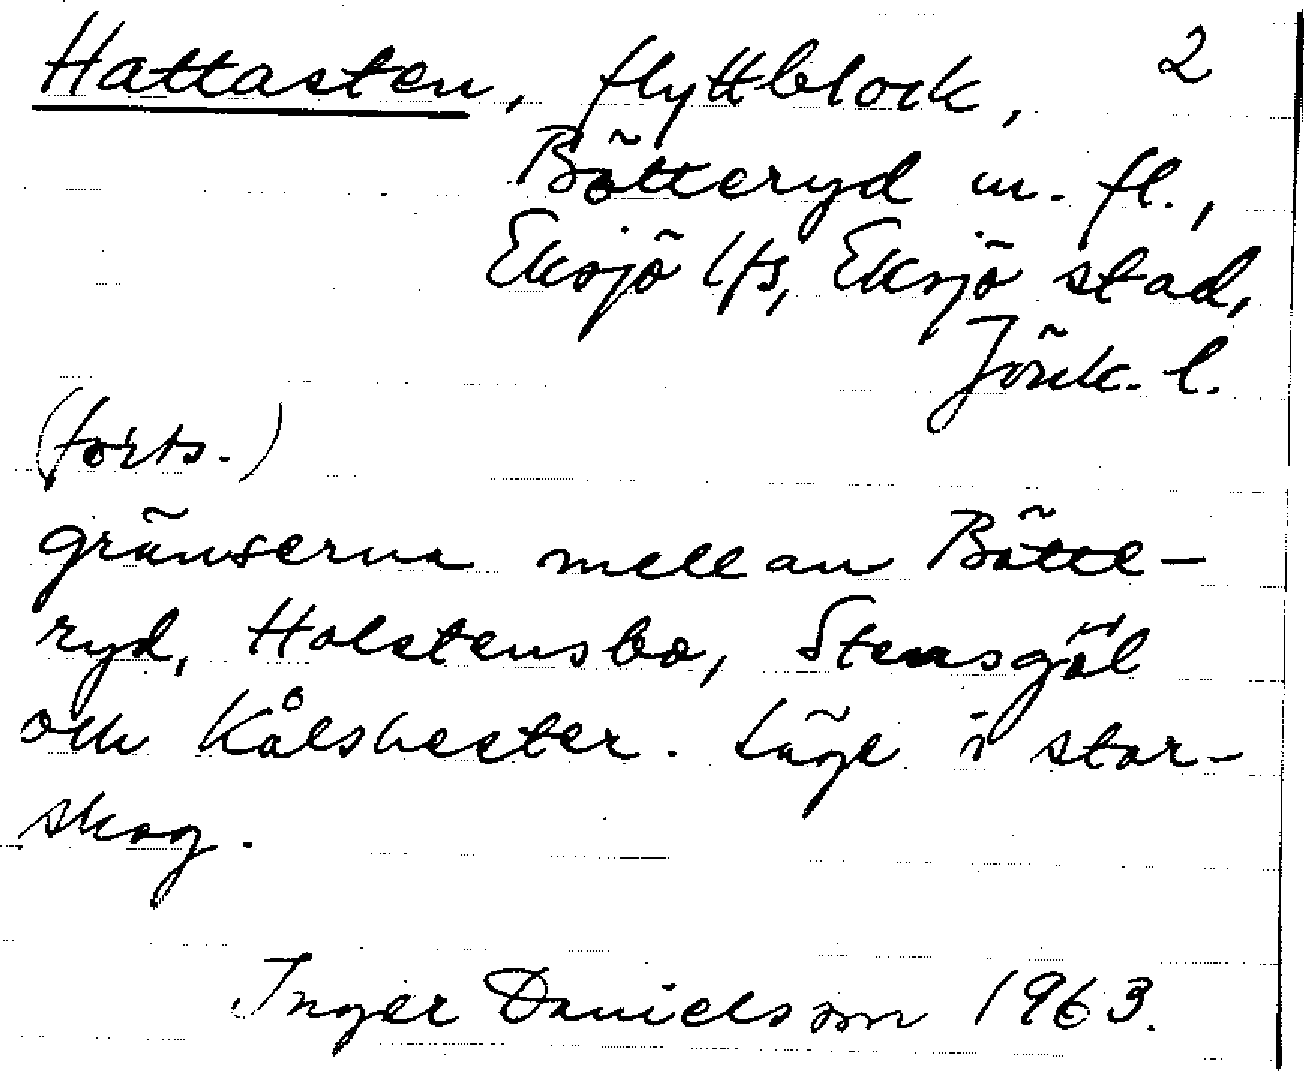 Hattasten, flyttblock, 2
Bötteryd m. fl.,
Eksjö lfs, Eksjö stad,
Jönk. l.
(forts.)
gränserna mellan Bötte-
ryd, Holstensbo, Stensgöl
och Kålshester. Läge i stor-
skog.
Inger Danielsson 1963.